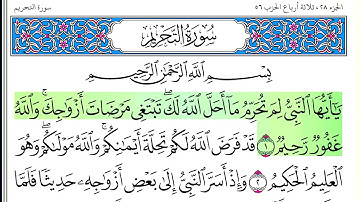 الجزء ٢٨، ثلاثة أرباع الحزب ٥٦ سورة التحريم
سُورَةُ التَّحْرِيمِ
بِسْمِ اللَّهِ الرَّحْمَٰنِ الرَّحِيمِ
يَا أَيُّهَا النَّبِيُّ لِمَ تُحَرِّمُ مَا أَحَلَّ اللَّهُ لَكَ ۖ تَبْتَغِي مَرْضَاتَ أَزْوَاجِكَ ۚ وَاللَّهُ
غَفُورٌ رَّحِيمٌ ١ قَدْ فَرَضَ اللَّهُ لَكُمْ تَحِلَّةَ أَيْمَانِكُمْ ۚ وَاللَّهُ مَوْلَاكُمْ ۖ وَهُوَ
الْعَلِيمُ الْحَكِيمُ ٢ وَإِذْ أَسَرَّ النَّبِيُّ إِلَىٰ بَعْضِ أَزْوَاجِهِ حَدِيثًا فَلَمَّا